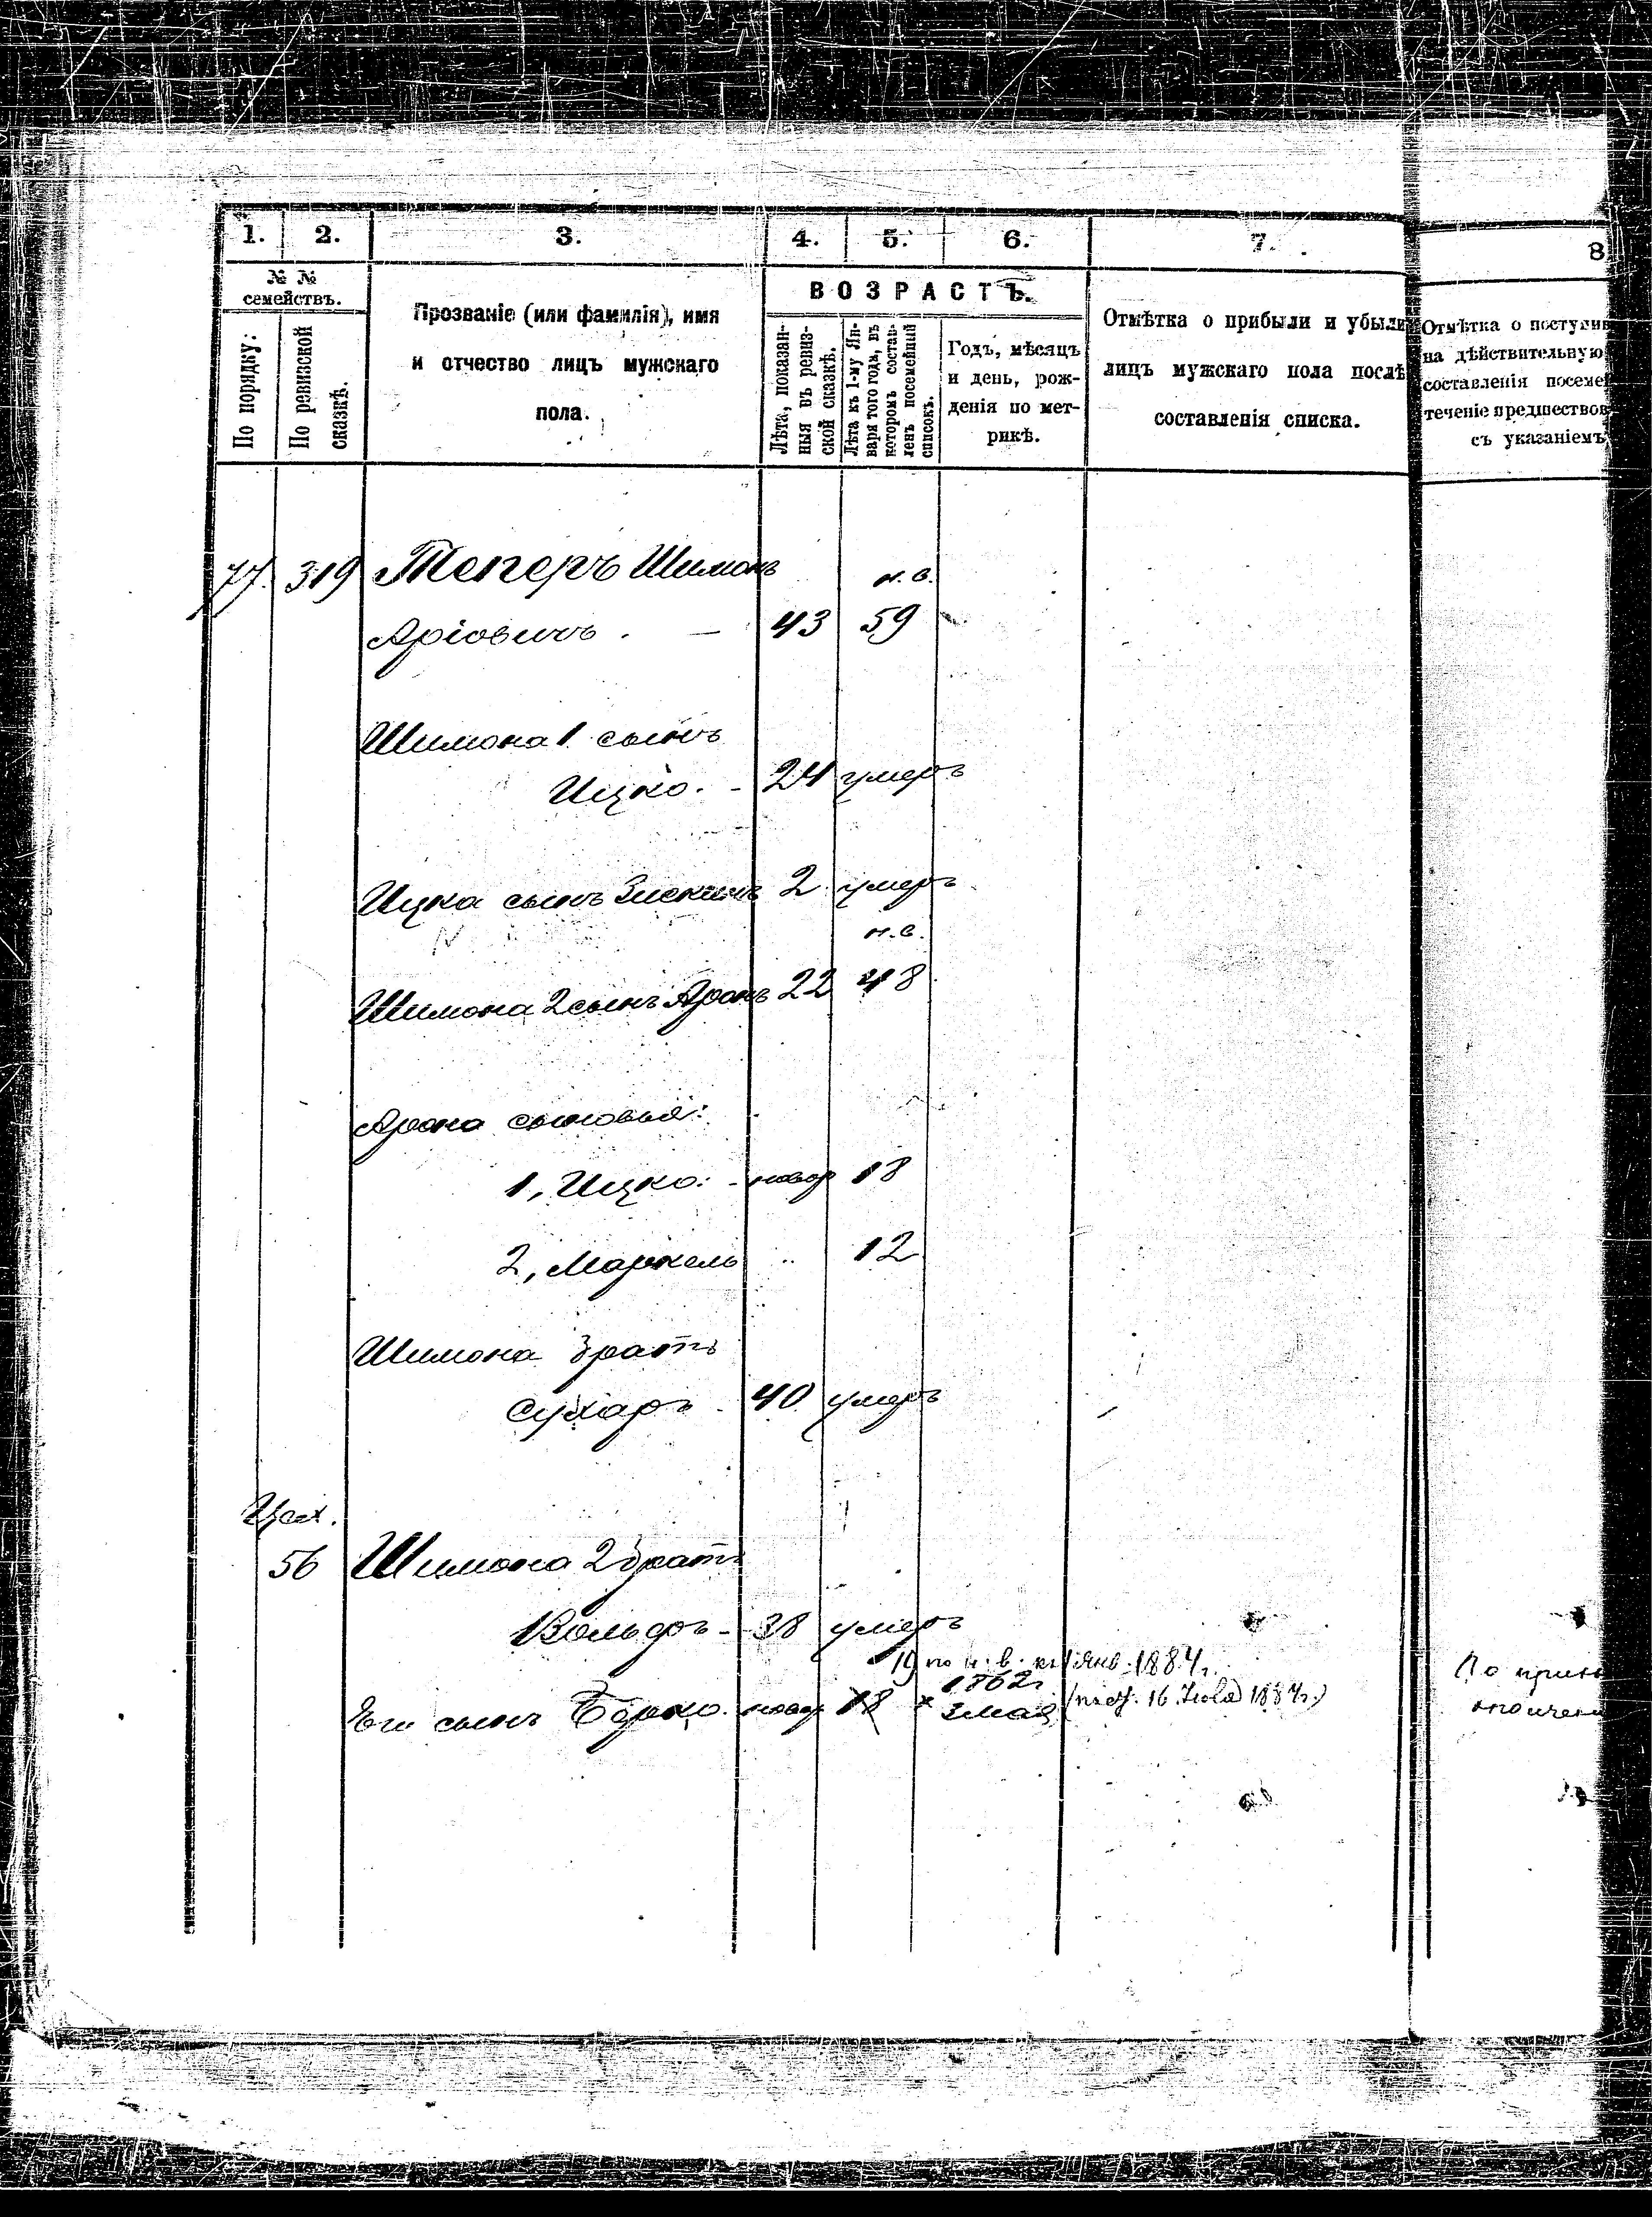 1. 2. 3. 4. 5. 6. 7. 8
№ №
семействъ.
По порядку.
По ревизской
сказкѣ.
Прозваніе (или фамилія), имя
и отчество лицъ мужскаго
пола.
ВОЗРАСТЪ.
Лѣта, показан-
ныя въ ревиз-
ской сказкѣ.
Лѣта къ 1-му Ян-
варя того года, въ
которомъ состав-
ленъ посемейный
списокъ.
Годъ, мѣсяцъ
и день, рож-
денія по мет-
рикѣ.
Отмѣтка о прибыли и убыли
лицъ мужскаго пола послѣ
составленія списка.
Отмѣтка о поступив
на дѣйствительную
составленія посеме
теченіе предшествов
съ указаніемъ
77. 319 Теперъ Шимонъ н.в.
Аріовичъ. — 43 59
Шимона 1 сынъ
Ицко. - 24 умеръ
Ицка сынъ 2 умеръ
н.в.
Шимона 2 сынъ Аронъ 22 48
Арона сыновья:
1, Ицко: - новор 18
2, Маркель .. 12
Шимона братъ
Сухаръ - 40 умеръ
Цех.
56 Шимона 2 братъ
Вольфъ - 38 умеръ
19 по н. в. къ 1 янв. 1884 г.
1862г
Его сынъ Борко. новор 18 × 3 мая 16 Іюля 1884 г.)
По